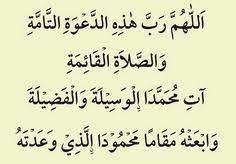 اَللّٰهُمَّ رَبَّ هٰذِهِ الدَّعْوَةِ التَّامَّةِ
وَالصَّلَاةِ الْقَائِمَةِ
آتِ مُحَمَّدَا ِۨالْوَسِيْلَةَ وَالْفَضِيْلَةَ
وَابْعَثْهُ مَقَامًا مَحْمُوْدَا ِۨالَّذِيْ وَعَدْتَهُ